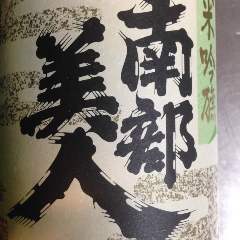 南部
美人
米吟醸